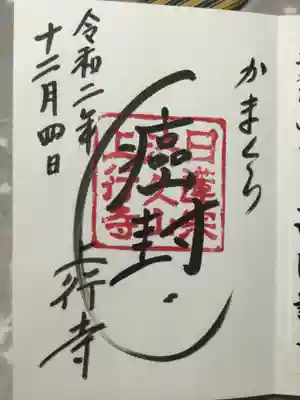 かまくら
癌封
上行寺
令和二年
十二月四日
日蓮宗
上行寺